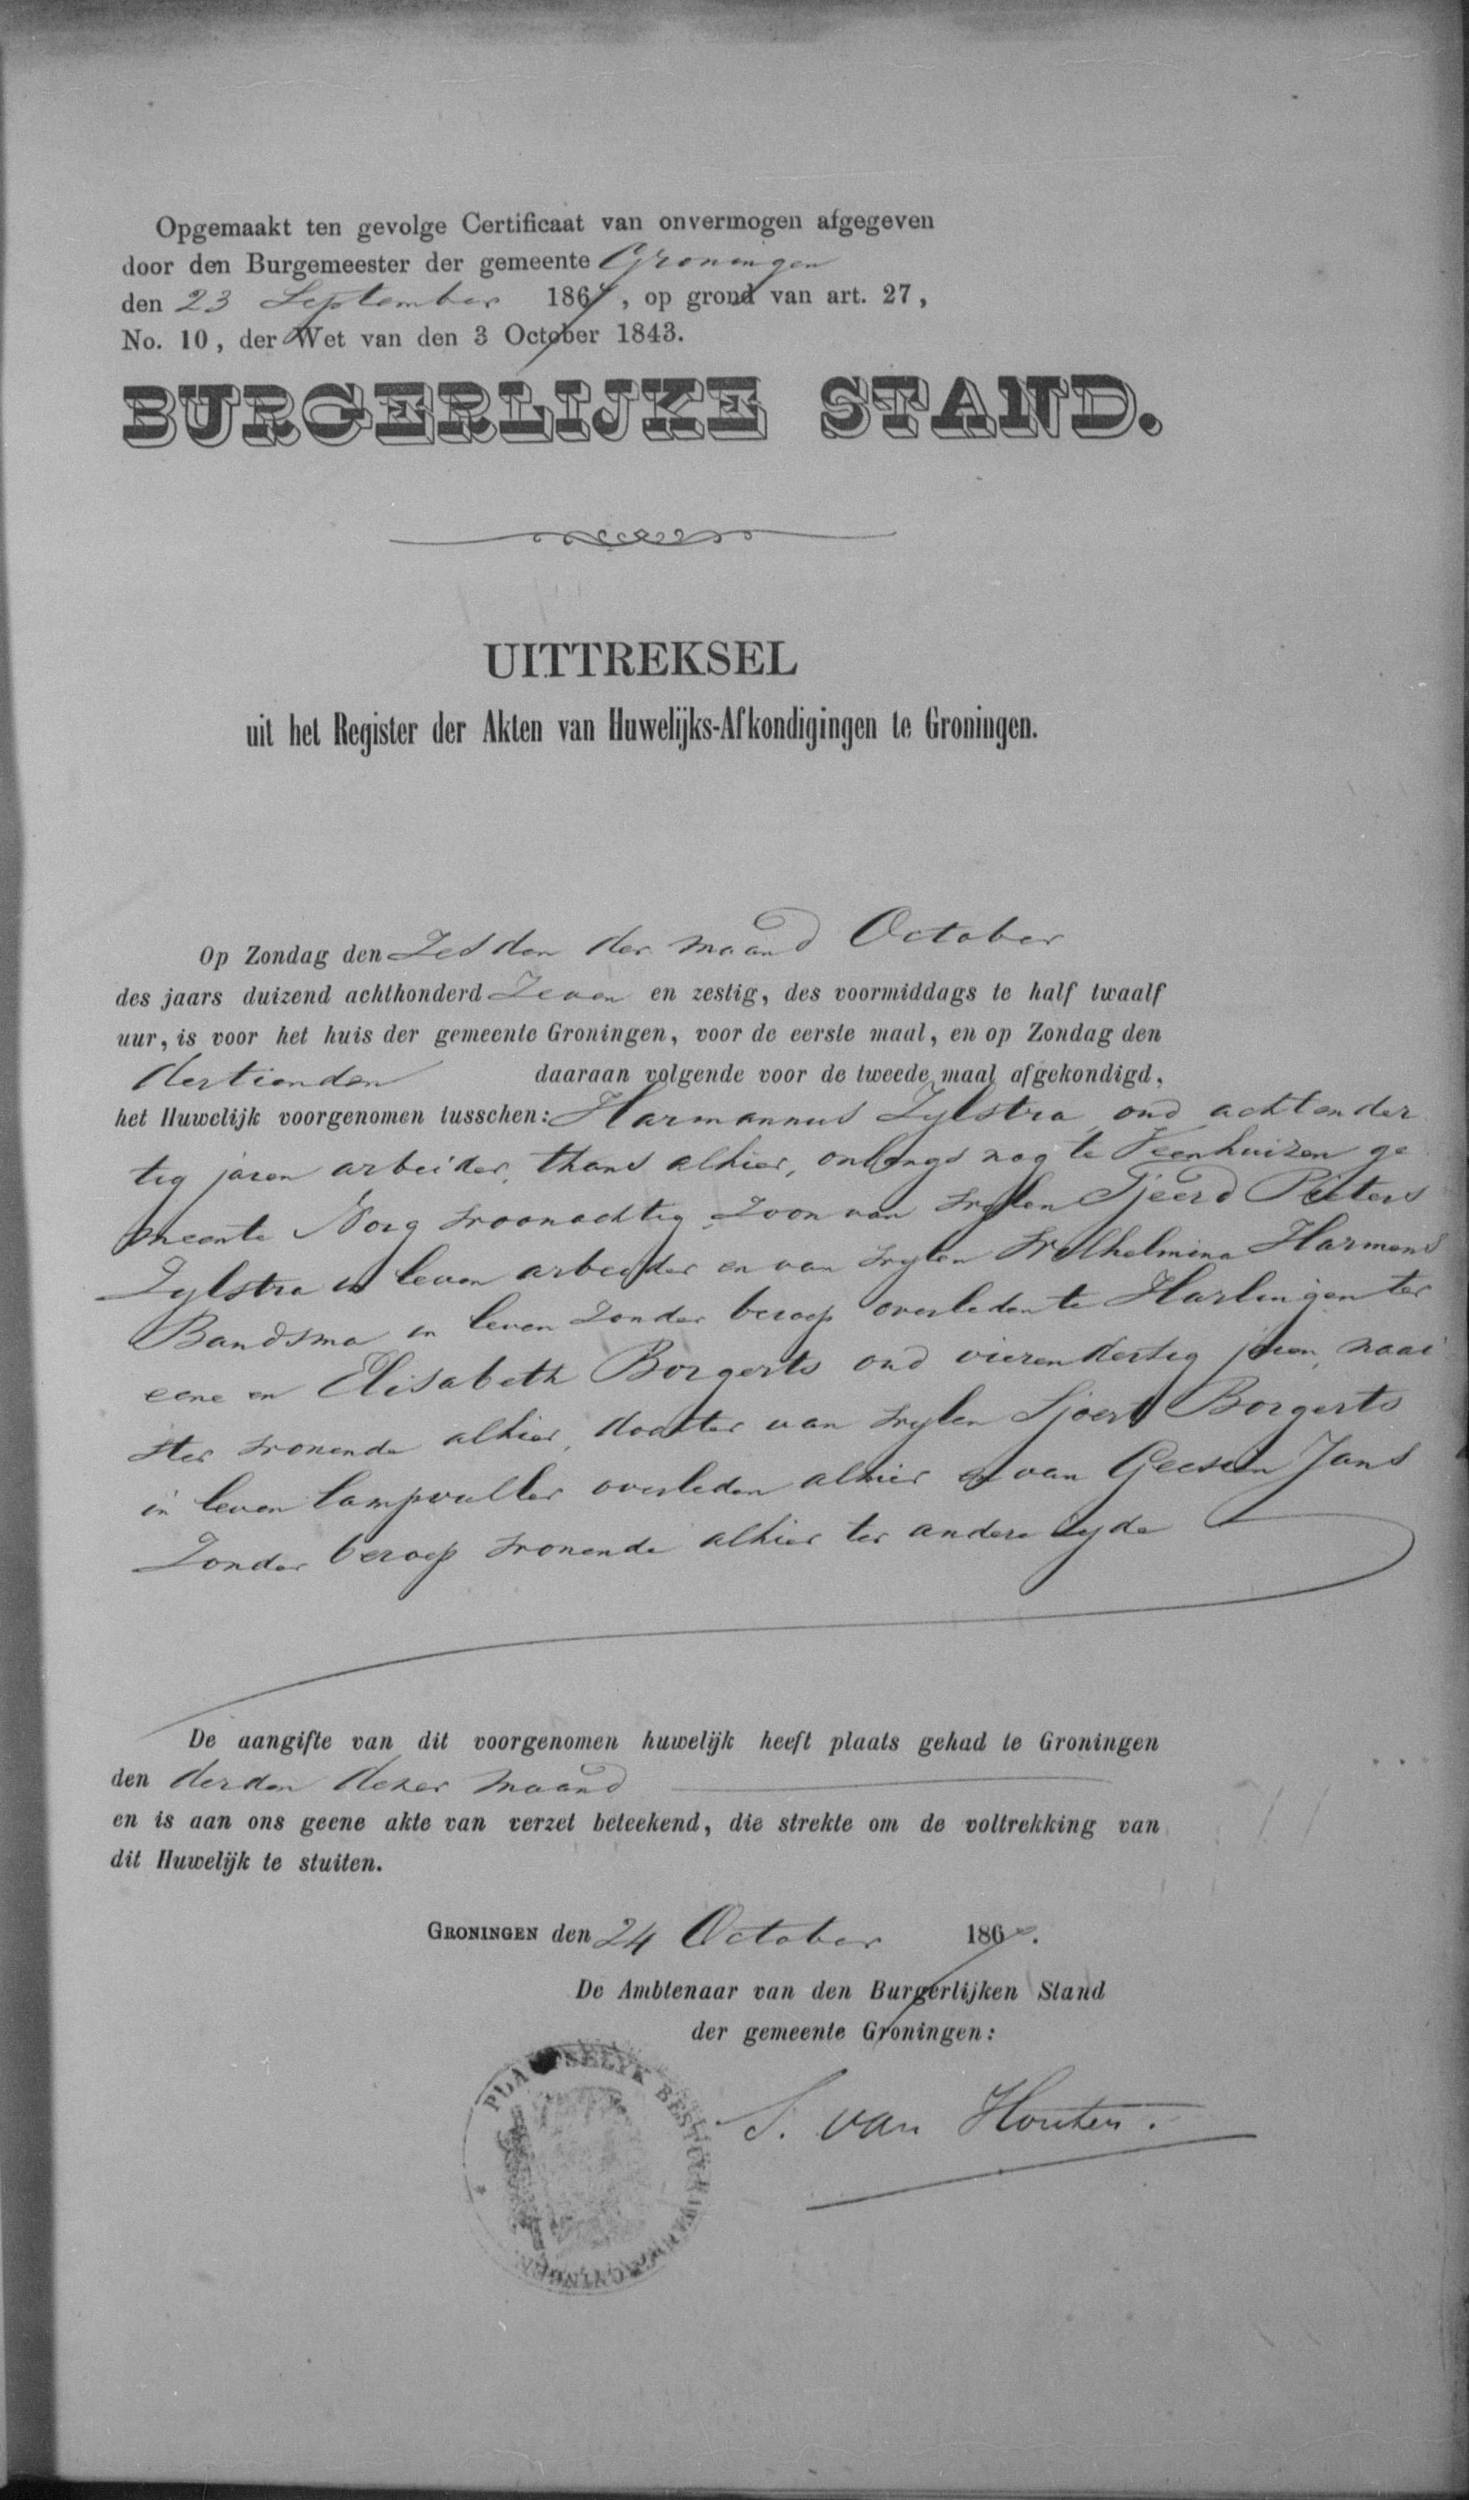 Opgemaakt ten gevolge Certificaat van onvermogen afgegeven
door den Burgemeester der gemeente Groningen
den 23 September 1867, op grond van art. 27,
No. 10, der Wet van den 3 October 1843.
BURGERLIJKE STAND.
UITTREKSEL
uit het Register der Akten van Huwelijks-Afkondigingen te Groningen.
Op Zondag den Zesden der maand October
des jaars duizend achthonderd Zeven en zestig, des voormiddags te half twaalf
uur, is voor het huis der gemeente Groningen, voor de eerste maal, en op Zondag den
dertienden daaraan volgende voor de tweede maal afgekondigd,
het Huwelijk voorgenomen tusschen: Harmannus Zylstra oud achtender
tig jaren arbeider, thans alhier, onlangs nog te Veenhuizen ge
meente Norg woonachtig, Zoon van wylen Tjeerd Pieters
Zylstra in leven arbeider en van wylen Wilhelmina Harmens
Bandsma in leven Zonder beroep overleden te Harlingen ter
eene en Elisabeth Borgerts oud vierendertig jaren, naai
ster wonende alhier, dochter van wylen Sjoert Borgerts
in leven lampvuller overleden alhier en van Geessien Jans
Zonder beroep wonende alhier ter andere zyde
De aangifte van dit voorgenomen huwelijk heeft plaats gehad te Groningen
den derden dezer maand
en is aan ons geene akte van verzet beteekend, die strekte om de voltrekking van
dit Huwelijk te stuiten.
GRONINGEN den 24 October 1867.
De Ambtenaar van den Burgerlijken Stand
der gemeente Groningen:
PLAATSELYK BESTUUR VAN GRONINGEN
S. van Houten.